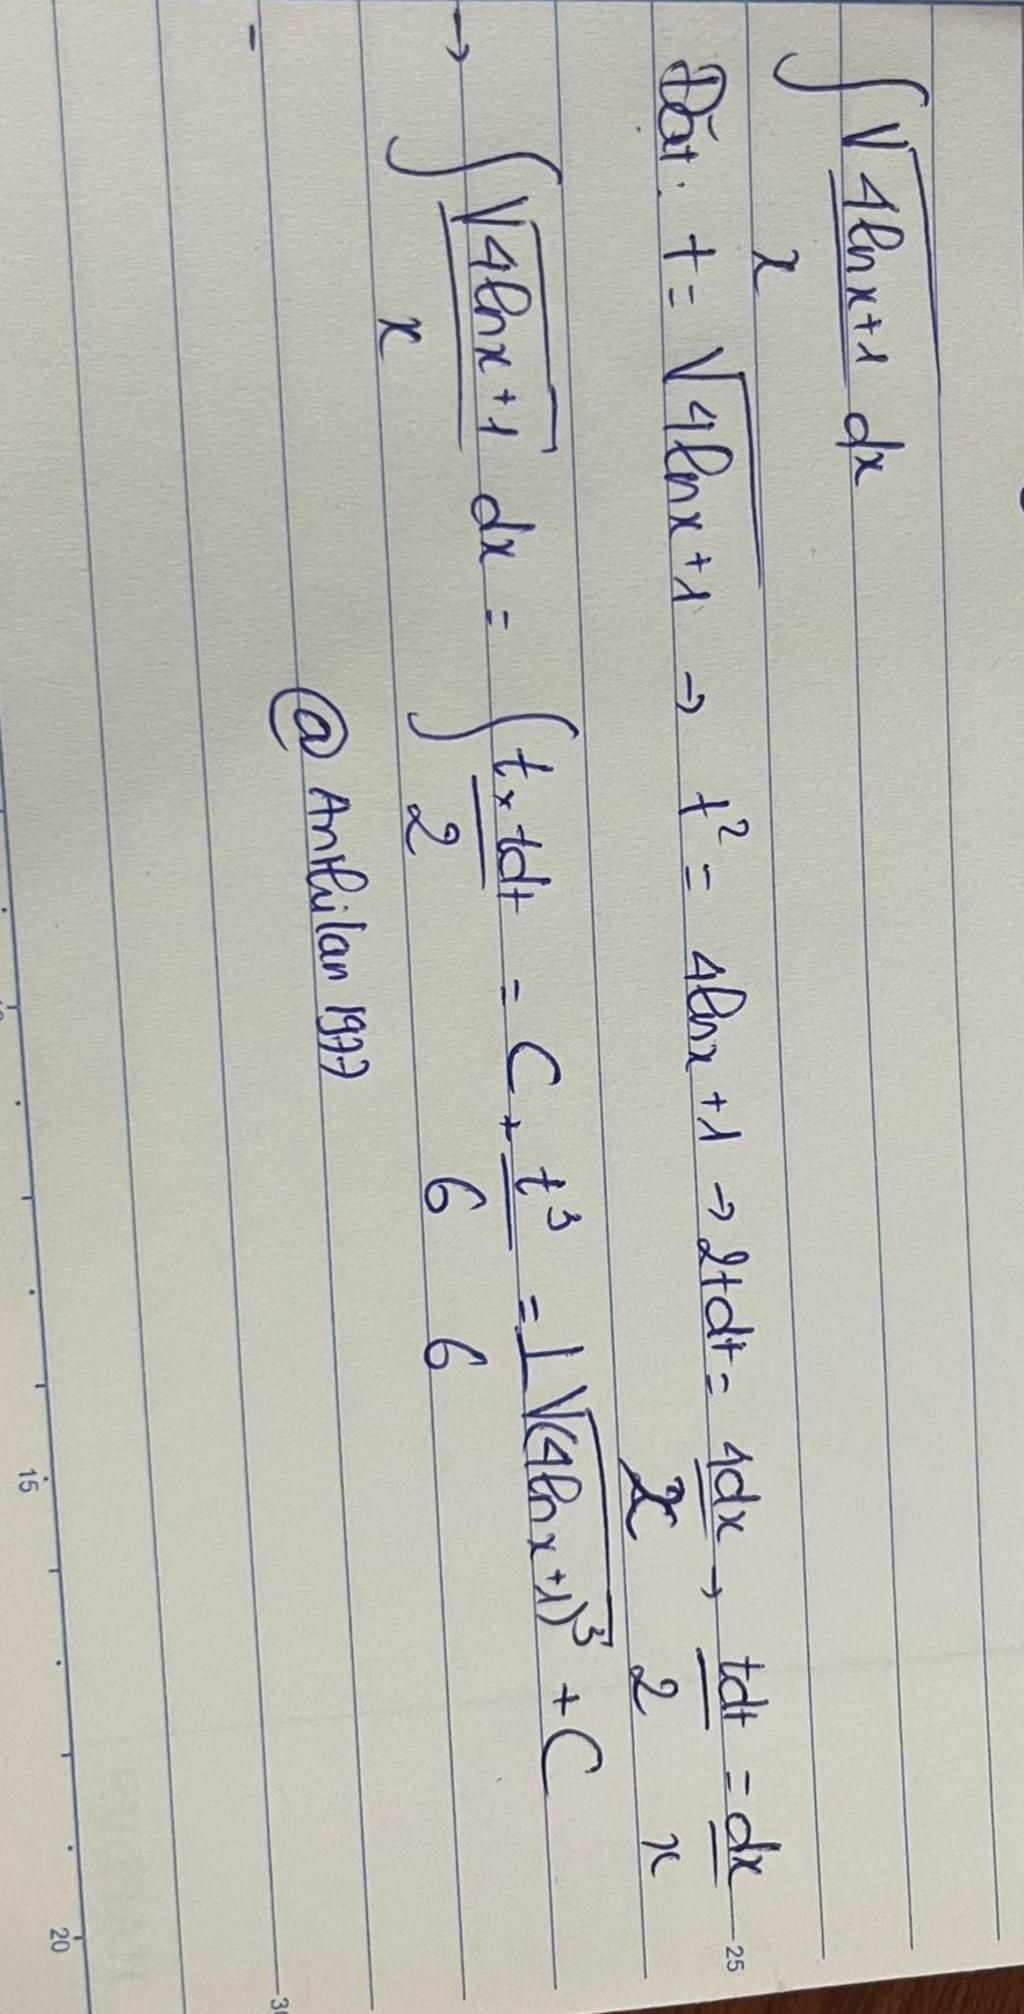 ∫ √(4lnx+1)/x dx
Đặt: t = √(4lnx+1) → t² = 4lnx+1 → 2tdt = 4dx/x → tdt/2 = dx/x
→ ∫ √(4lnx+1)/x dx = ∫ t×tdt/2 = C + t³/6 = 1/6 √(4lnx+1)³ + C
@ Anthilan 1977
15
20
25
30